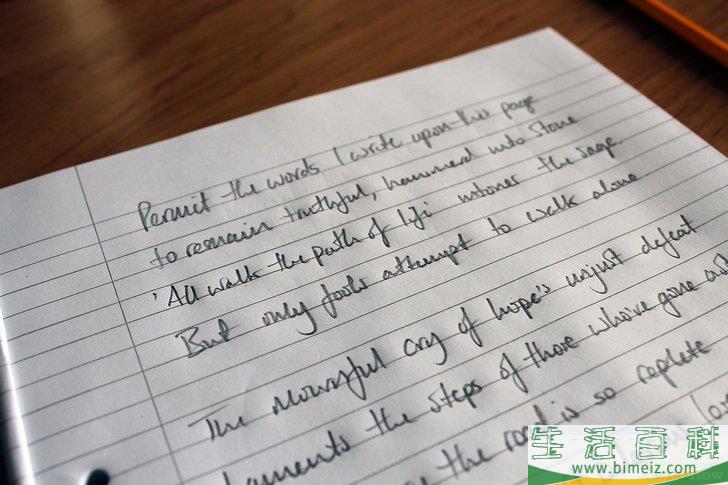 Permit the words I write upon this page
to remain truthful, hammered into stone
'All walk the path of life' intones the sage.
But only fools attempt to walk alone
The mournful cry of hope's unjust defeat
laments the steps of those who've gone
the road is so replete
生活百科
www.bimeiz.com